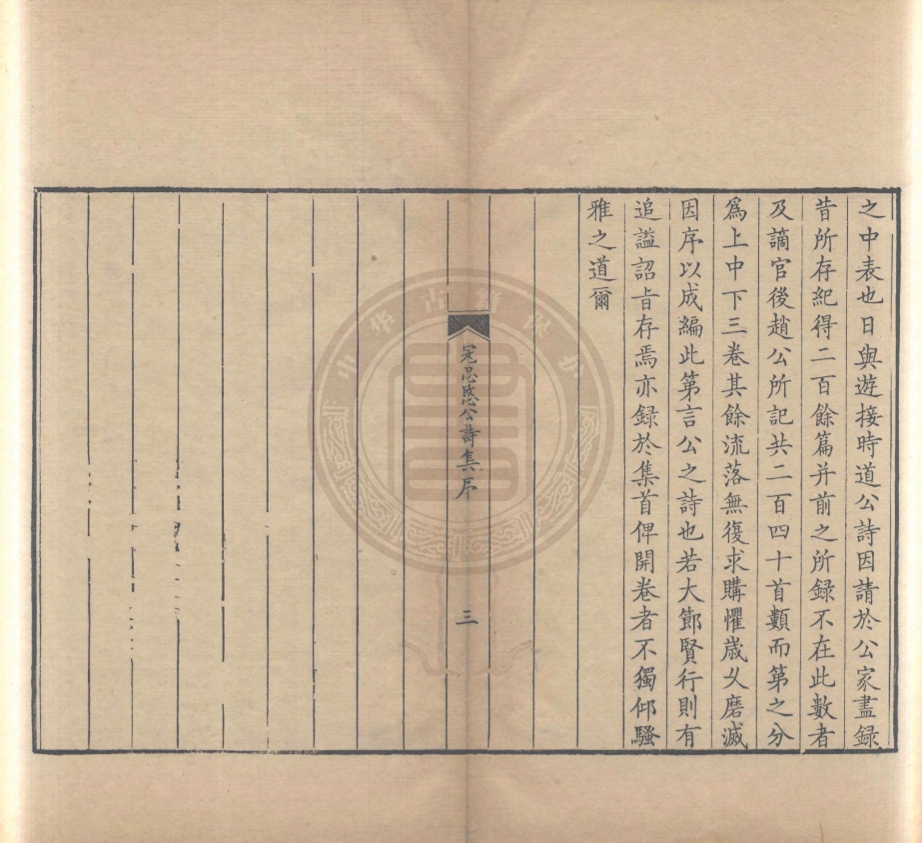 之中表也日與遊接時道公詩因請於公家盡録
昔所存紀得二百餘篇并前之所録不在此數者
及謫官後趙公所記共二百四十首類而第之分
爲上中下三卷其餘流落無復求購懼歳久磨滅
因序以成編此第言公之詩也若大節賢行則有
追謚詔旨存焉亦録於集首俾開卷者不獨仰騷
雅之道爾
冦忠愍公詩集序
三
中华古籍保护